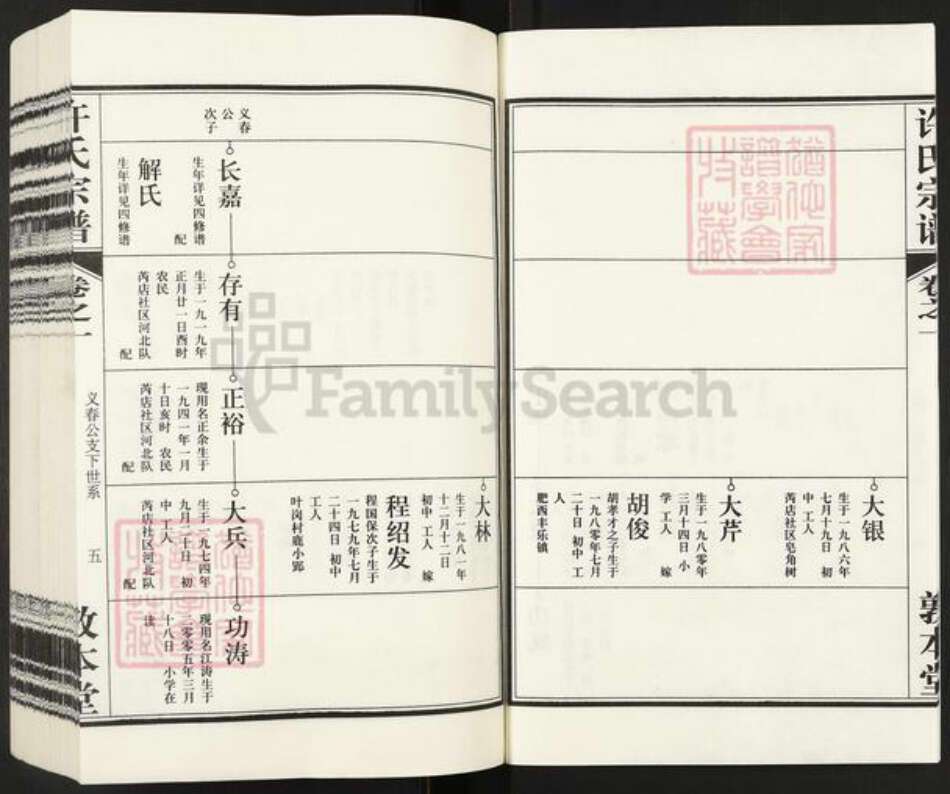 许氏宗谱
卷之一
敦本堂
大银
生于一九八六年
七月十九日 初
中
芮店社区皂角树
大芹
生于一九八〇年
三月十四日 小
学 工人 嫁
胡俊
胡孝才之子生于
一九八〇年七月
二十日 初中 工
人
肥西丰乐镇
义春
公
次子
长嘉
生年详见四修谱
配
解氏
生年详见四修谱
存有
生于一九一九年
正月廿一日酉时
农民
芮店社区河北队
配
正裕
现用名正余生于
一九四一年一月
十日亥时 农民
芮店社区河北队
配
大林
生于一九八一年
十二月十二日
初中 工人 嫁
程绍发
程国保次子生于
一九七九年七月
二十四日 初中
工人
叶岗村鹿小郢
大兵
生于一九七四年
九月二十日 初
中 工人
芮店社区河北队
配
功涛
现用名江涛生于
二零零五年三月
十八日 小学在
读
许氏宗谱
卷之一
义春公支下世系
五
敦本堂
FamilySearch